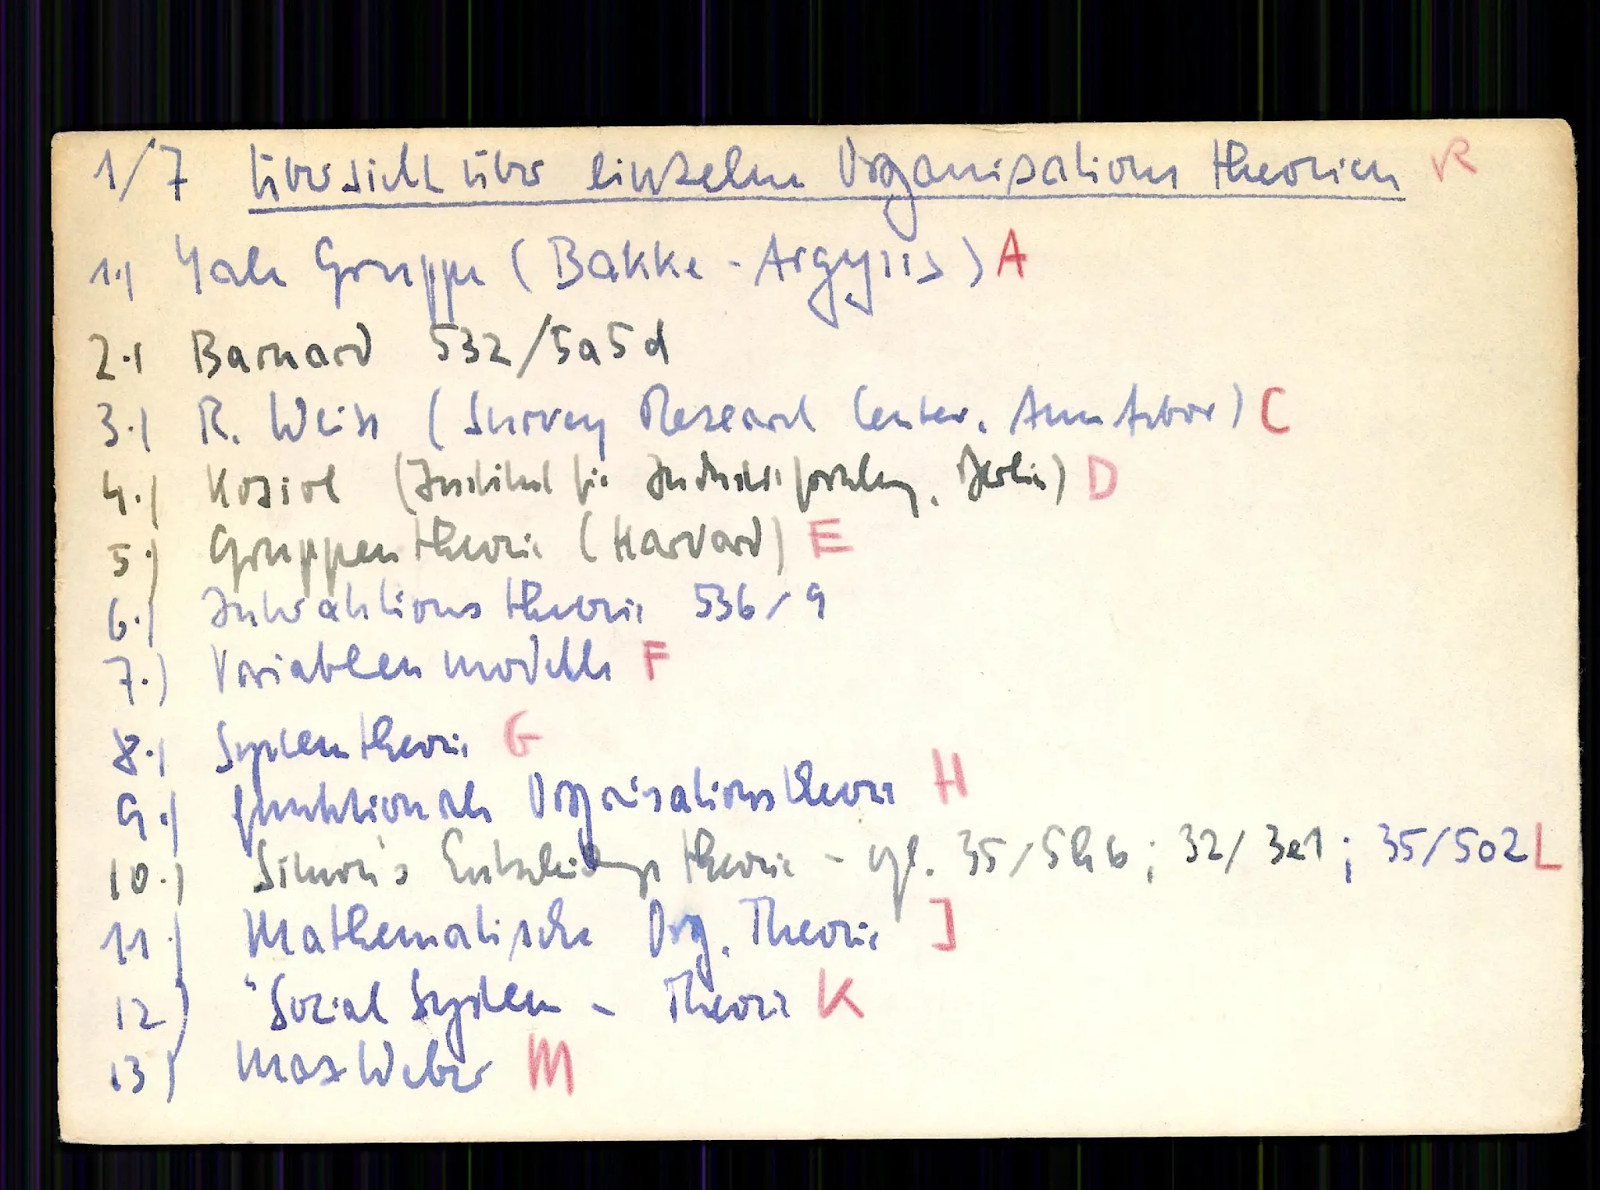 1/7 Übersicht über einzelne Organisationstheorien R
1.) Yale Gruppe (Bakke - Argyris) A
2.) Barnard 532/5a5d
3.) R. Weiss (Survey Research Center, Ann Arbor) C
4.) Kosiol (Institut für Industrieforschung, Berlin) D
5.) Gruppentheorie (Harvard) E
6.) Interaktionstheorie 536/9
7.) Variablenmodelle F
8.) Systemtheorie G
9.) funktionale Organisationstheorie H
10.) Simon's Entscheidungstheorie - vgl. 35/5hb; 32/3e1; 35/5o2 L
11.) Mathematische Org. Theorie J
12) "Sozial System - Theorie K
13) Max Weber M